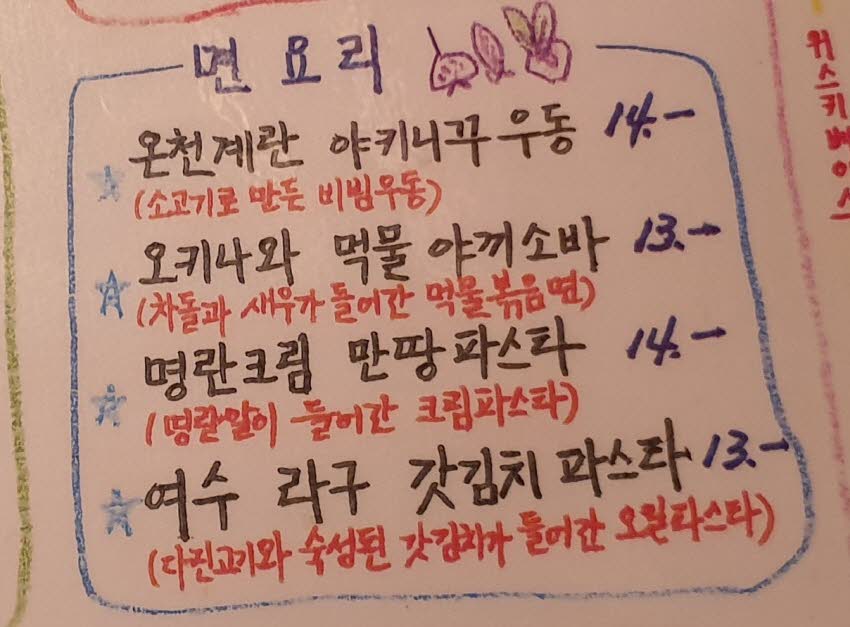 면 요리
온천계란 야키니꾸 우동 14.-
(소고기로 만든 비빔우동)
오키나와 먹물 야끼소바 13.-
(차돌과 새우가 들어간 먹물볶음면)
명란크림 만땅파스타 14.-
(명란알이 들어간 크림파스타)
여수 라구 갓김치 파스타 13.-
(다진고기와 숙성된 갓김치가 들어간 오일파스타)
위스키베이스